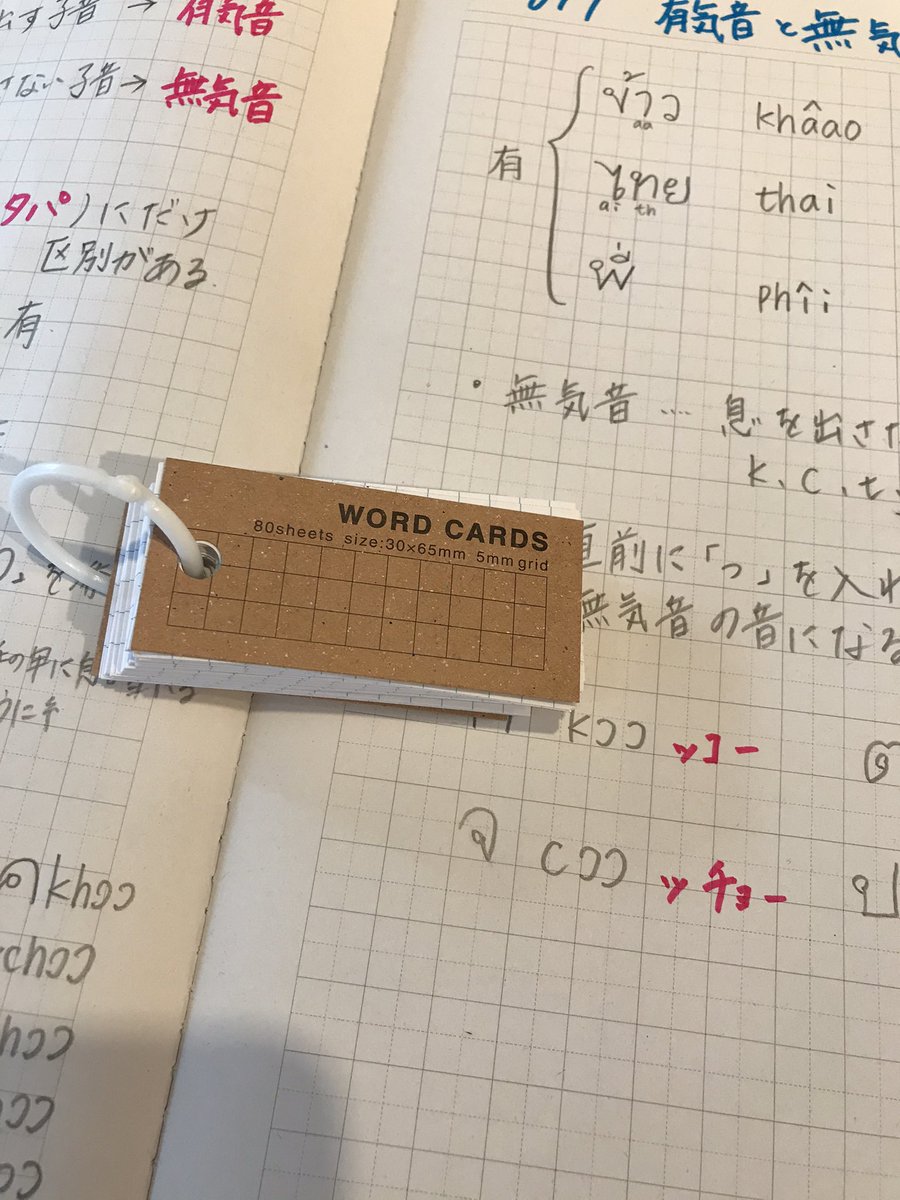 出す子音 → 有気音
さない子音 → 無気音
タパ)にだけ
区別がある.
有
khɔɔ
chɔɔ
hɔɔ
ɔɔ
有気音と無気
有
ข้าว khâao
aa
ไทย thai
ai th
พี่ phîi
・無気音 .... 息を出さ
k、c、t、
WORD CARDS
80sheets size:30×65mm 5mm grid
直前に「っ」を入れ
無気音の音になる
kɔɔ ッコー
จ cɔɔ ッチョー ป